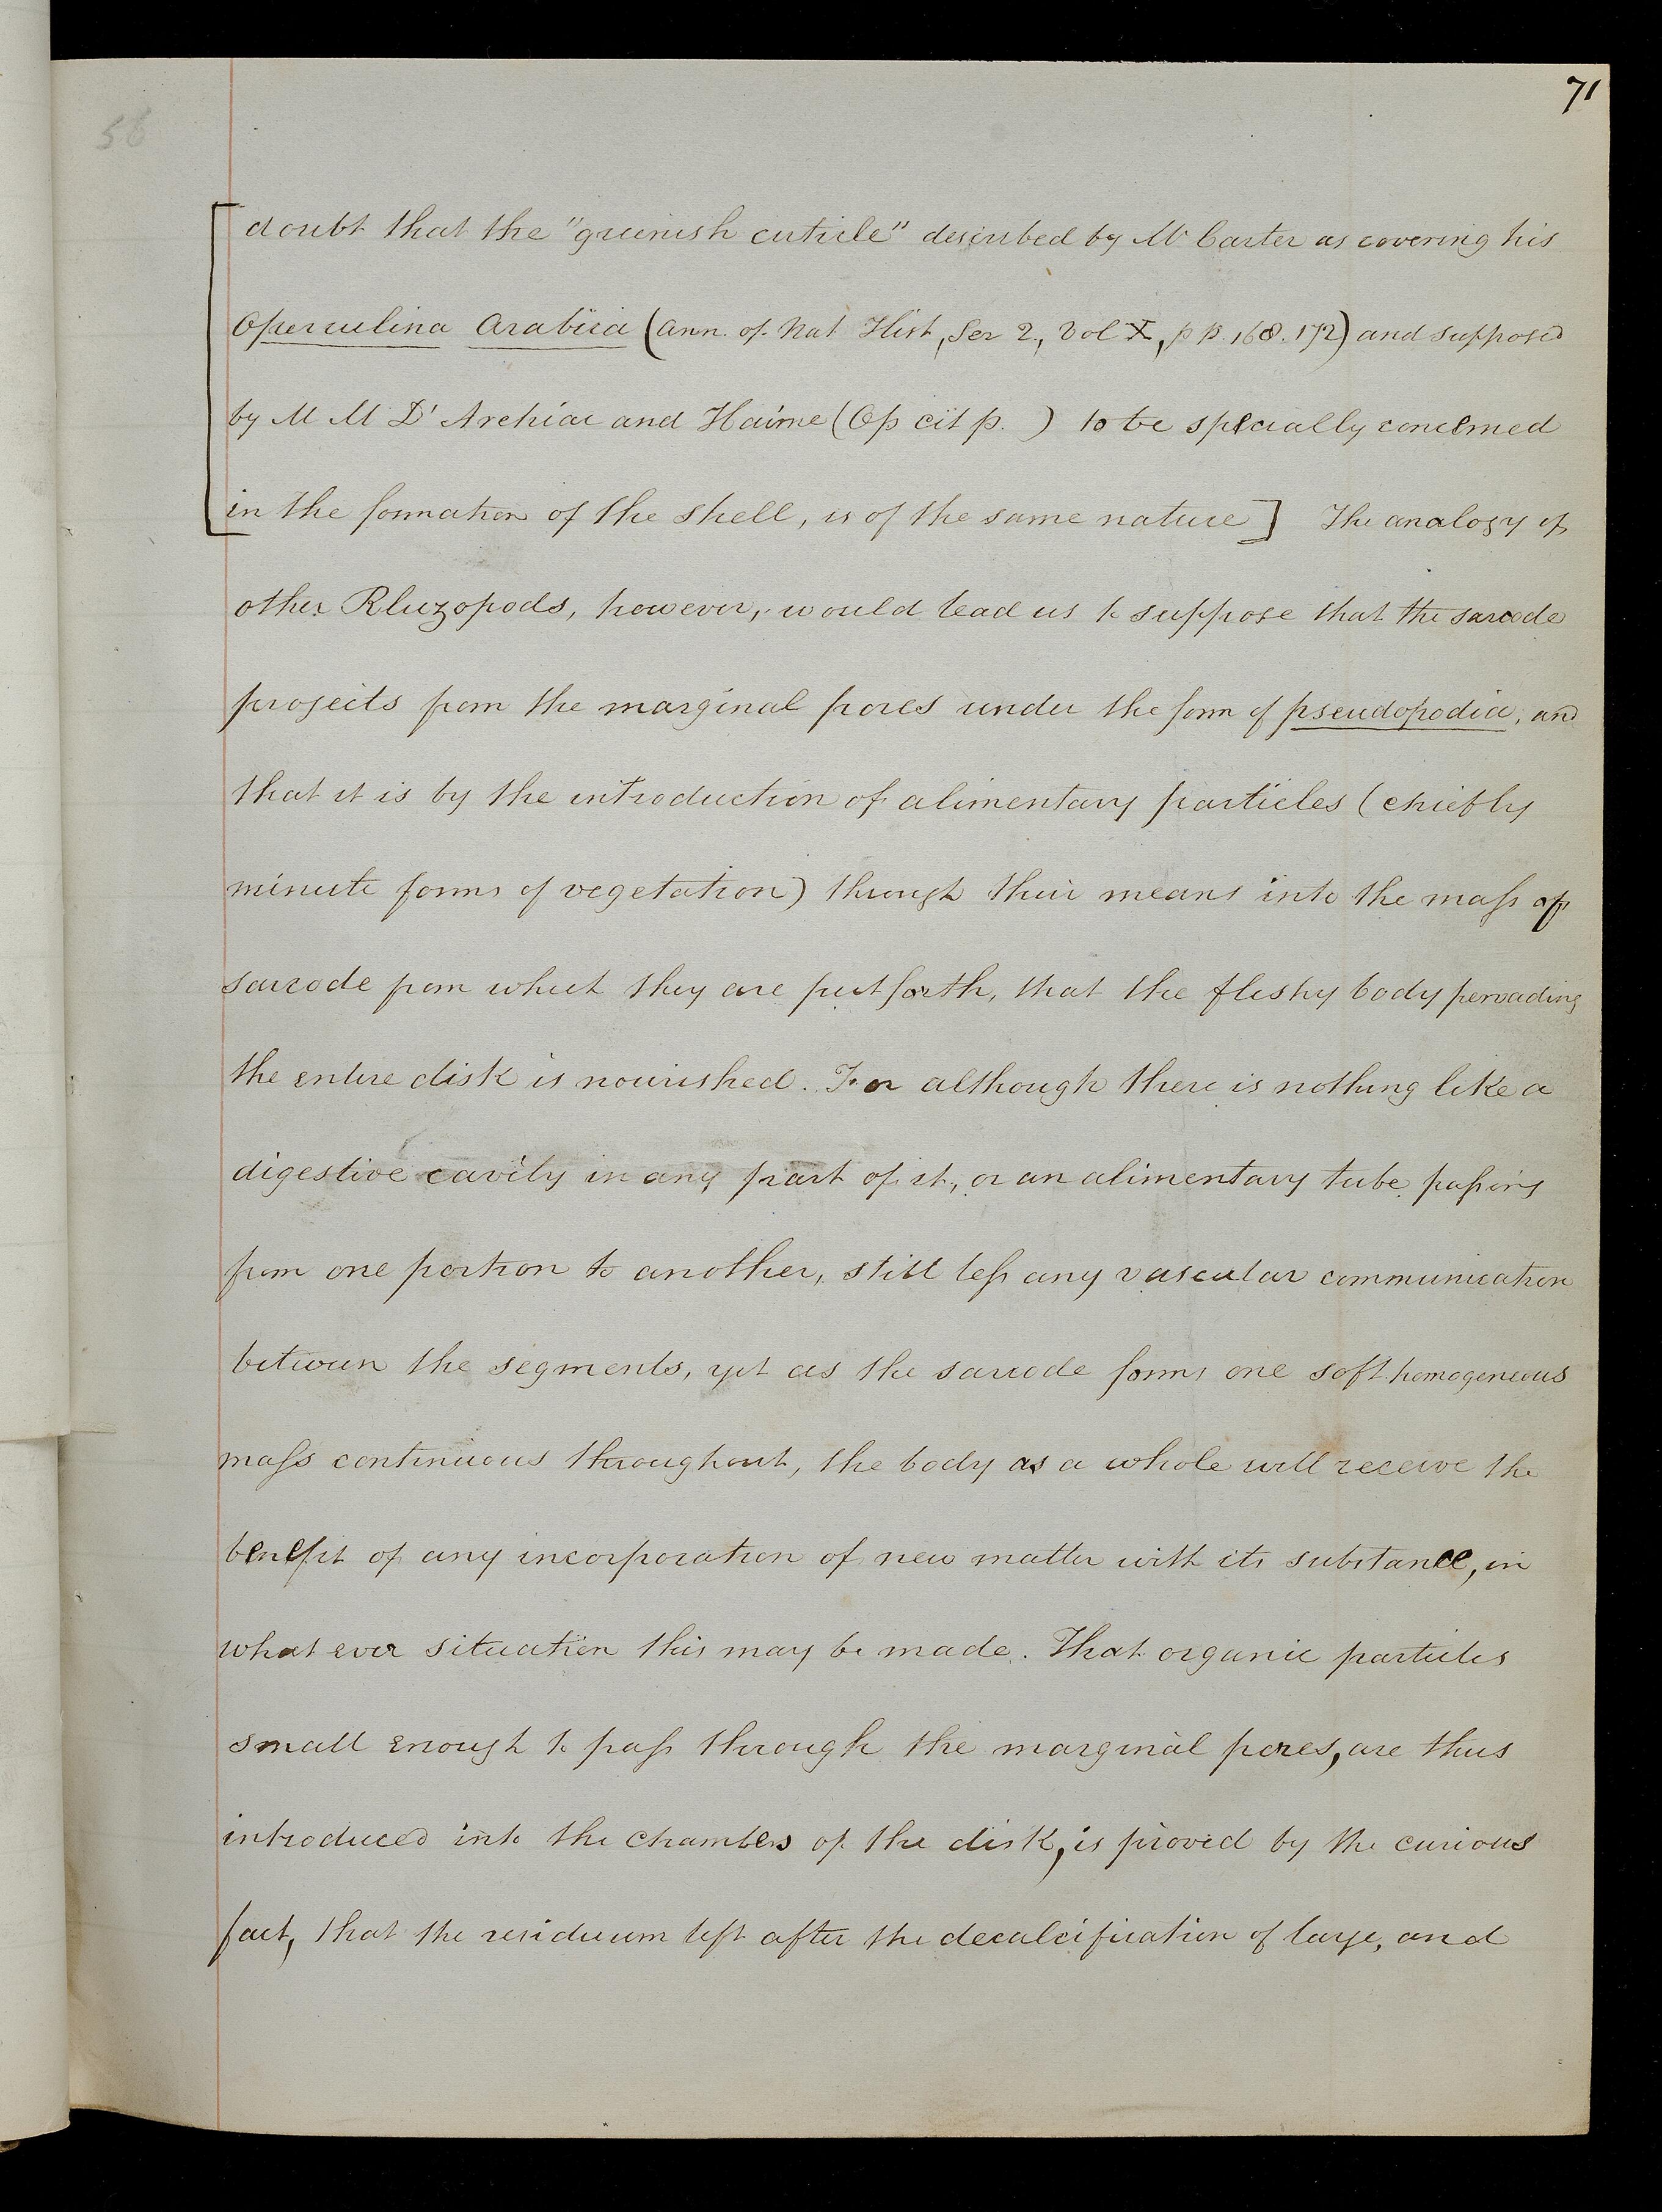 71
56
[doubt that the "greenish cuticle" described by Mr Carter as covering his
Operculina Arabica (Ann. of Nat Hist, Ser 2., Vol X, pp. 168. 172) and supposed
by M M D'Archiac and Haime (Op cit p. ) to be specially concerned
in the formation of the shell, is of the same nature] The analogy of
other Rhizopods, however, would lead us to suppose that the sarcode
projects from the marginal pores under the form of pseudopodia, and
that it is by the introduction of alimentary particles (chiefly
minute forms of vegetation) through their means into the mass of
sarcode from which they are put forth, that the fleshy body pervading
the entire disk is nourished. For although there is nothing like a
digestive cavity in any part of it, or an alimentary tube passing
from one portion to another, still less any vascular communication
between the segments, yet as the sarcode forms one soft homogeneous
mass continuous throughout, the body as a whole will receive the
benefit of any incorporation of new matter with its substance, in
what ever situation this may be made. That organic particles
small enough to pass through the marginal pores, are thus
introduced into the chambers of the disk, is proved by the curious
fact, that the residuum left after the decalcification of large, and